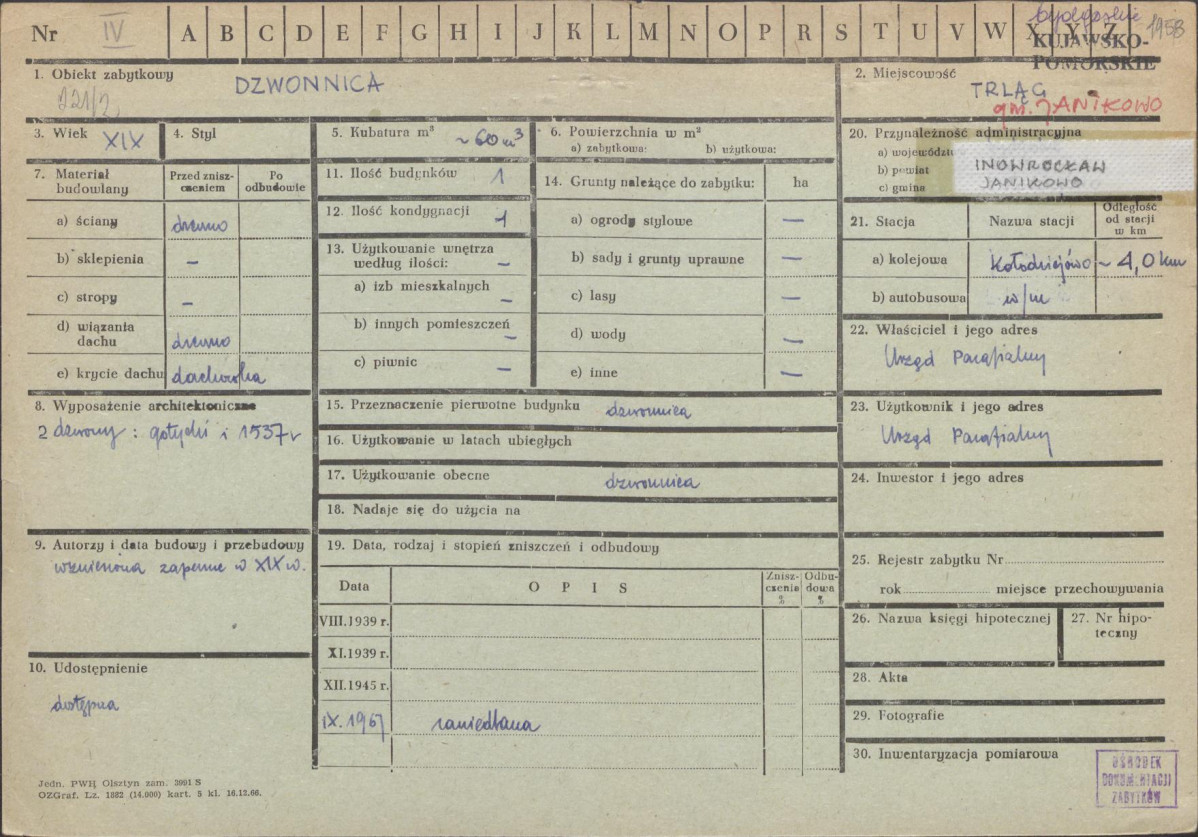 Nr IV A B C D E F G H I J K L M N O P R S T U V W X Y Z bydgoskie 1958
KUJAWSKO-
POMORSKIE
1. Obiekt zabytkowy
DZWONNICA
2. Miejscowość
TRLĄG
gm. JANIKOWO
3. Wiek XIX
4. Styl
5. Kubatura m³ ~60 m³
6. Powierzchnia w m²
a) zabytkowa: b) użytkowa:
20. Przynależność administracyjna
a) województ
b) powiat
c) gmina
INOWROCŁAW
JANIKOWO
7. Materiał budowlany
Przed zniszczeniem
Po odbudowie
a) ściany drewno
b) sklepienia –
c) stropy –
d) wiązania dachu drewno
e) krycie dachu dachówka
11. Ilość budynków 1
12. Ilość kondygnacji 1
13. Użytkowanie wnętrza
według ilości: –
a) izb mieszkalnych –
b) innych pomieszczeń –
c) piwnic –
14. Grunty należące do zabytku: ha
a) ogrody stylowe –
b) sady i grunty uprawne –
c) lasy –
d) wody –
e) inne –
21. Stacja
Nazwa stacji
Odległość od stacji w km
a) kolejowa Kołodziejowo ~4,0 km
b) autobusowa w/m
22. Właściciel i jego adres
Urząd Parafialny
8. Wyposażenie architektoniczne
2 dzwony: gotycki i 1537 r
15. Przeznaczenie pierwotne budynku dzwonnica
16. Użytkowanie w latach ubiegłych
17. Użytkowanie obecne dzwonnica
18. Nadaje się do użycia na
23. Użytkownik i jego adres
Urząd Parafialny
24. Inwestor i jego adres
9. Autorzy i data budowy i przebudowy
wzniesiona zapewne w XIX w.
19. Data, rodzaj i stopień zniszczeń i odbudowy
Data
OPIS
Zniszczenie %
Odbudowa %
VIII.1939 r.
XI.1939 r.
XII.1945 r.
IX.1967 zaniedbana
10. Udostępnienie
dostępna
25. Rejestr zabytku Nr
rok miejsce przechowywania
26. Nazwa księgi hipotecznej
27. Nr hipoteczny
28. Akta
29. Fotografie
30. Inwentaryzacja pomiarowa
OŚRODEK
DOKUMENTACJI
ZABYTKÓW
Jedn. PWH Olsztyn zam. 3991 S
OZGraf. Lz. 1882 (14.000) kart. 5 kl. 16.12.66.